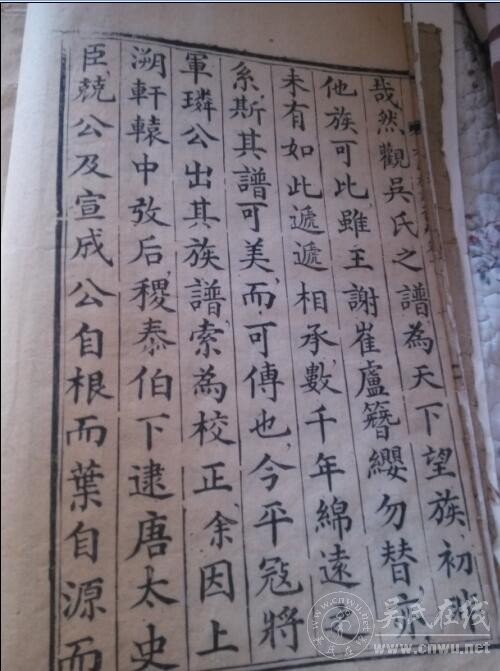 哉然觀吳氏之譜為天下望族初
他族可比雖主謝崔盧簪纓勿替
未有如此遞遞相承數千年綿遠之
系斯其譜可美而可傳也今平冦將
軍璘公出其族譜索為校正余因上
溯軒轅中攷后稷泰伯下逮唐太史
臣兢公及宣成公自根而葉自源而
吴氏在线
www.cnwu.net